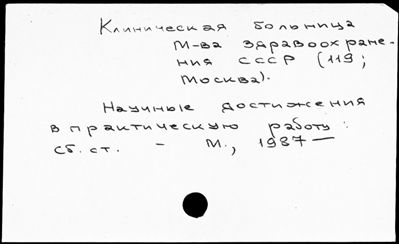 Клиническая больница
М-ва здравоохране-
ния СССР (119;
Москва).
Научные достижения
в практическую работу:
сб. ст. - М., 1987—